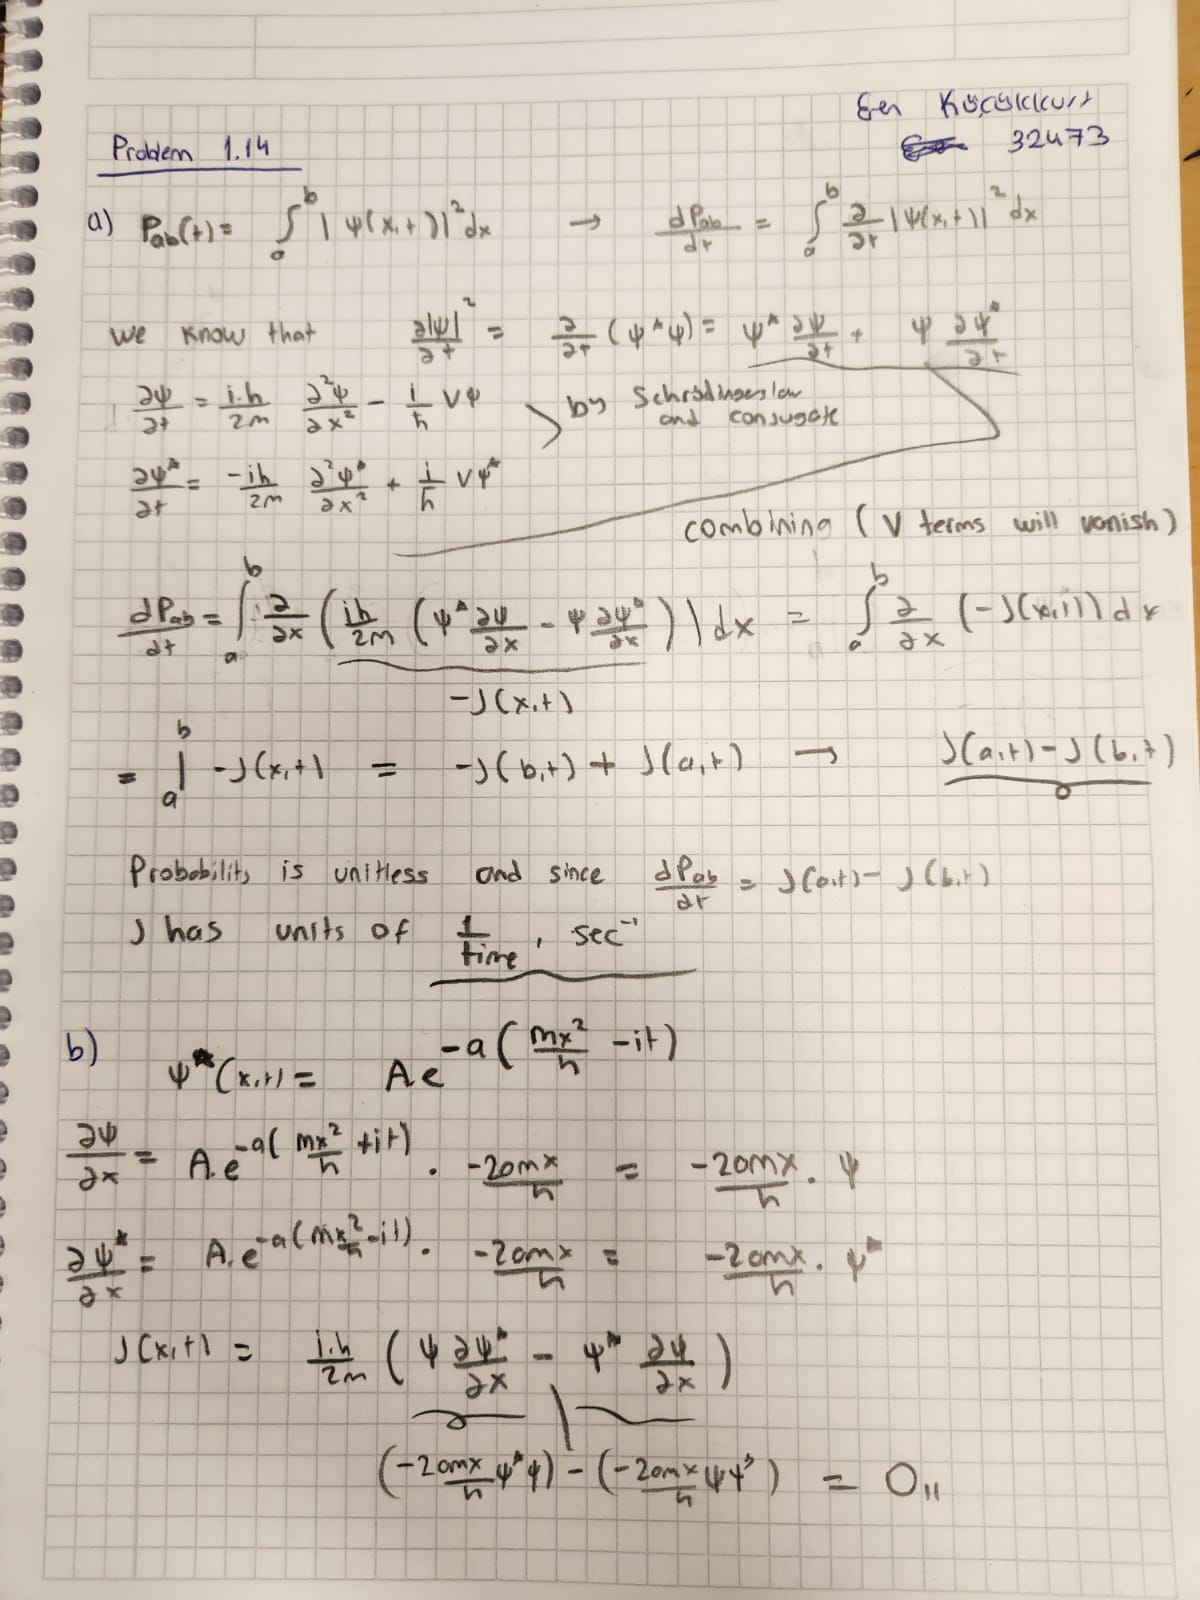 Problem 1.14
32473
a) Pab(t) = ∫_a^b |ψ(x,t)|² dx → dPab/dt = ∫_a^b ∂/∂t |ψ(x,t)|² dx
we know that ∂|ψ|²/∂t = ∂/∂t (ψ*ψ) = ψ* ∂ψ/∂t + ψ ∂ψ*/∂t
∂ψ/∂t = i.ħ/2m ∂²ψ/∂x² - i/ħ Vψ > by Schrödingers law and conjugate
∂ψ*/∂t = -iħ/2m ∂²ψ*/∂x² + i/ħ Vψ*
combining (V terms will vanish)
dPab/dt = ∫_a^b ∂/∂x (iħ/2m (ψ* ∂ψ/∂x - ψ ∂ψ*/∂x)) dx = ∫_a^b ∂/∂x (-J(x,t)) dx
-J(x,t)
= |_a^b -J(x,t) = -J(b,t) + J(a,t) → J(a,t) - J(b,t)
Probability is unitless and since dPab/dt = J(a,t) - J(b,t)
J has units of 1/time, sec⁻¹
b) ψ*(x,t) = A e^{-a(mx²/ħ - it)}
∂ψ/∂x = A.e^{-a(mx²/ħ + it)} . -2amx/ħ = -2amx/ħ . ψ
∂ψ*/∂x = A.e^{-a(mx²/ħ - it)} . -2amx/ħ = -2amx/ħ . ψ*
J(x,t) = i.ħ/2m (ψ ∂ψ*/∂x - ψ* ∂ψ/∂x)
(-2amx/ħ ψ*ψ) - (-2amx/ħ ψψ*) = 0,,